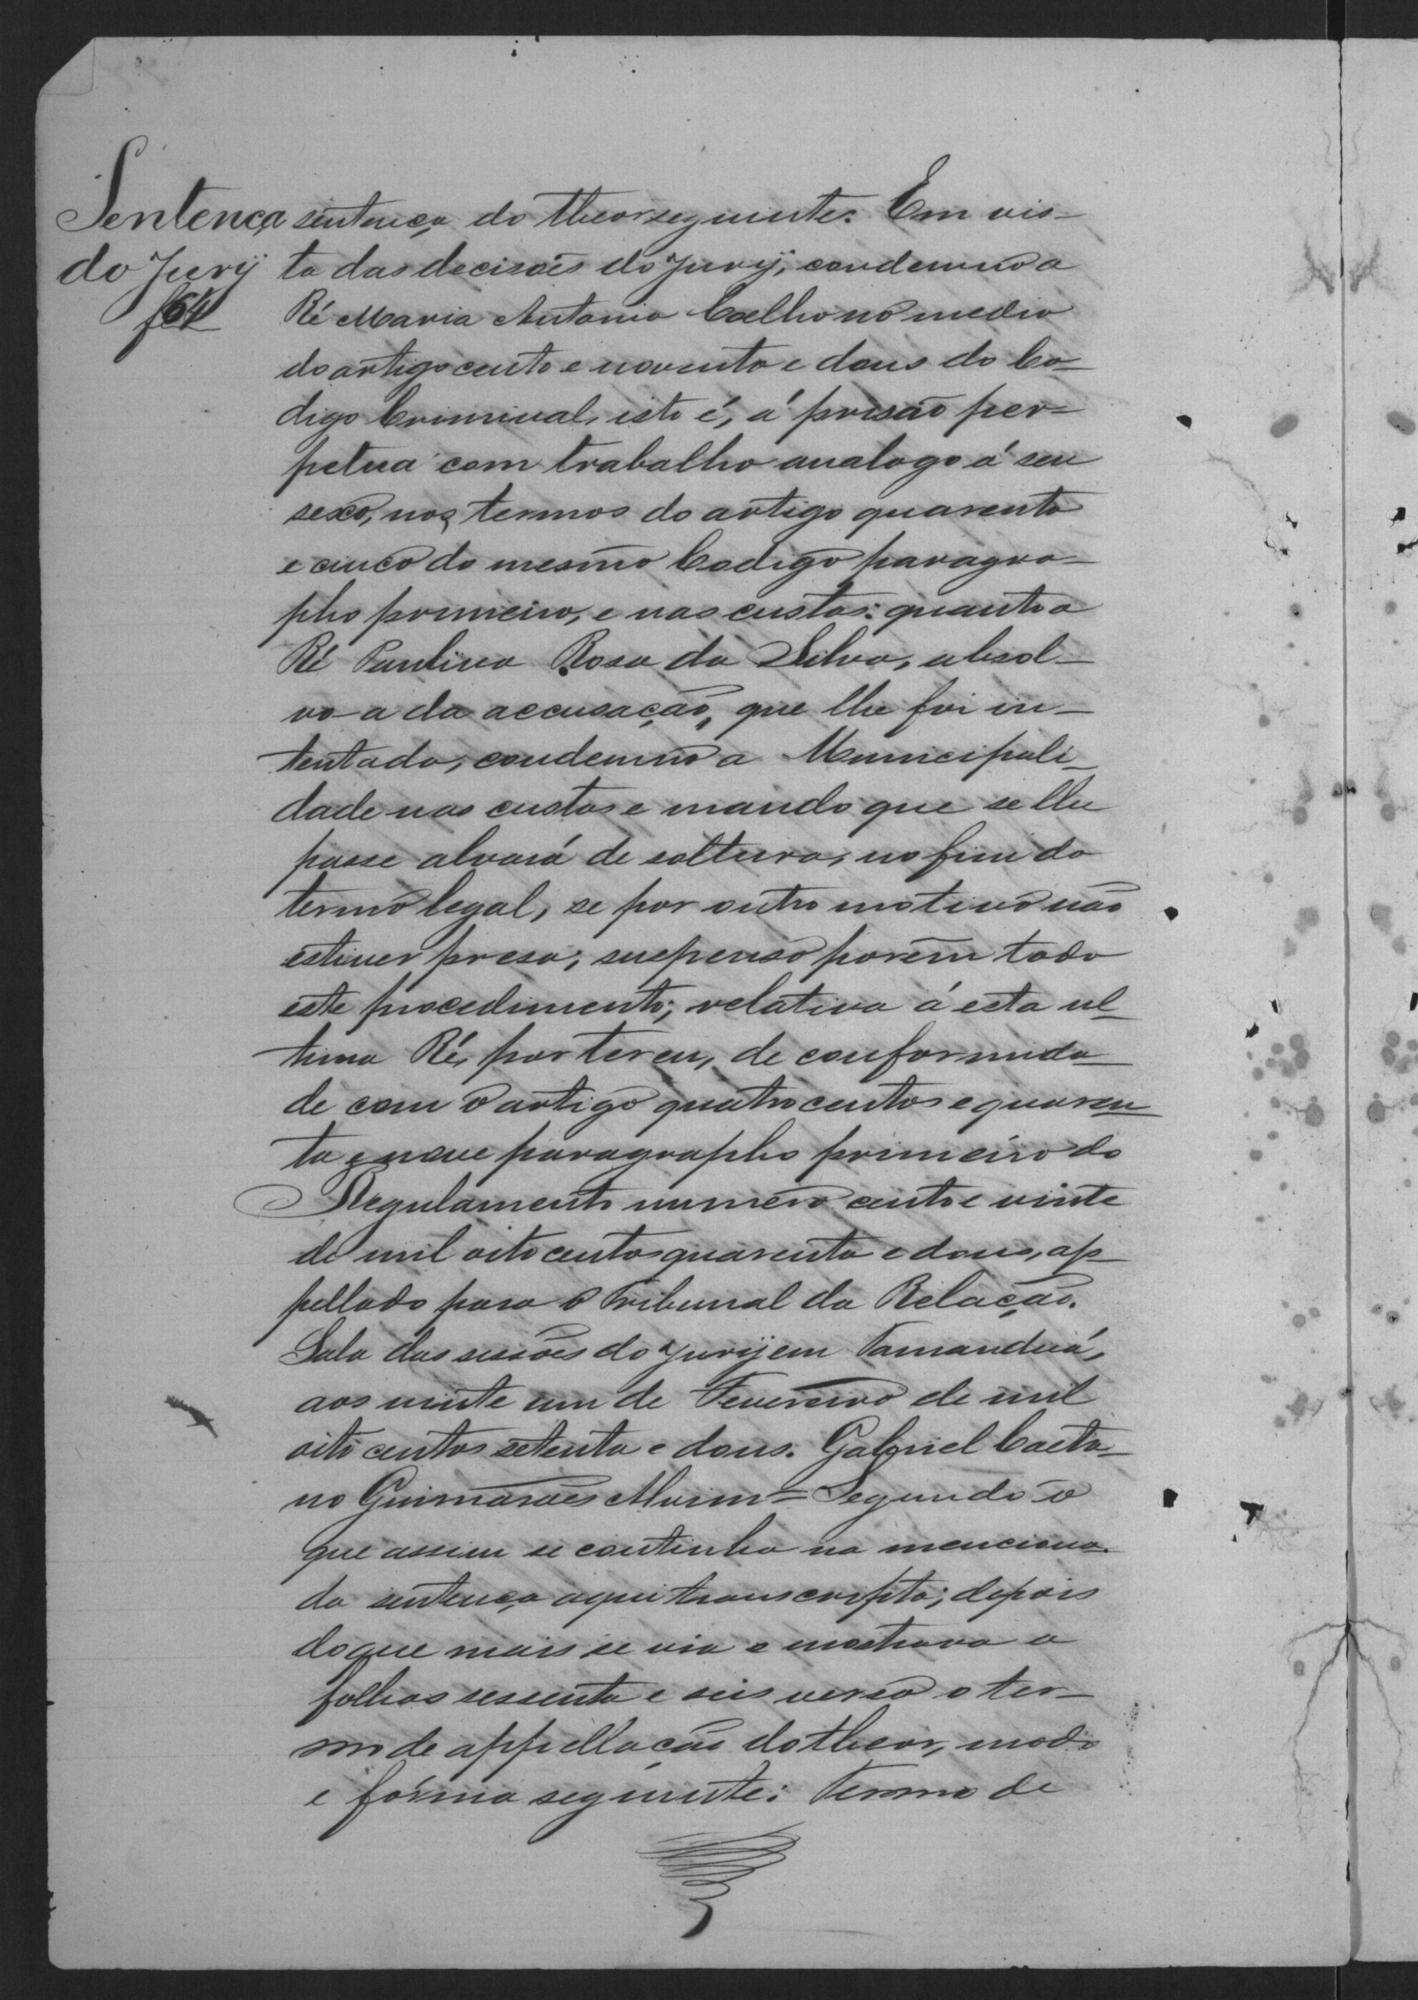 Sentença
do Jury
f 64
sentença do theor seguinte: Em vis-
ta das decisões do Jury, condemno a
Ré Maria Antonia Coelho no medio
do artigo cento e noventa e dous do Co-
digo Criminal, isto é, á prisão per-
petua com trabalho analogo á seu
sexo, nos termos do artigo quarenta
e cinco do mesmo Codigo paragra-
pho primeiro, e nas custas: quanto a
Ré Paulina Rosa da Silva, absol-
vo-a da accusação, que lhe foi in-
tentada, condemno a Municipali-
dade nas custas e mando que se lhe
passe alvará de soltura, no fim do
termo legal, se por outro motivo não
estiver presa; suspenso porém todo
este procedimento, relativo á esta ul-
tima Ré, por ter eu, de conformida-
de com o artigo quatrocentos e quaren-
ta e nove paragrapho primeiro do
Regulamento numero cento e vinte
de mil oitocentos quarenta e dous, ap-
pellado para o Tribunal da Relação.
Sala das sessões do Jury em Tamanduá,
aos vinte um de Fevereiro de mil
oito centos setenta e dous. Gabriel Caeta-
no Guimarães Alvim = Segundo o
que assim se continha na menciona-
da sentença aqui transcripta; depois
do que mais se via e mostrava a
folhas sessenta e seis verso o ter-
mo de appellação do theor, modo
e fórma seguinte: Termo de